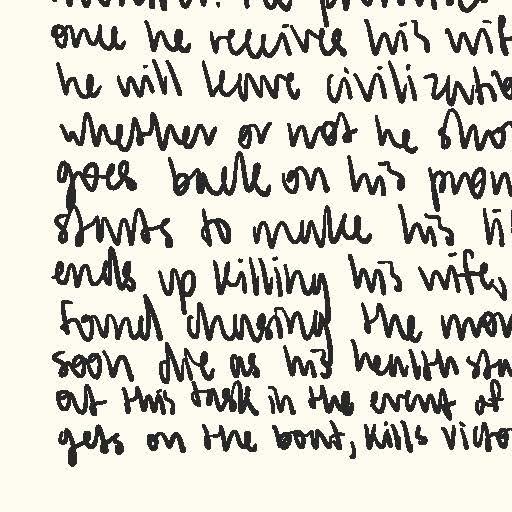 once he receives his wif
he will leave civilizatio
whether or not he sho
goes back on his prom
starts to make his li
ends up killing his wife,
found chasing the mon
soon die as his health sta
out this task in the event of
gets on the boat, kills Victo